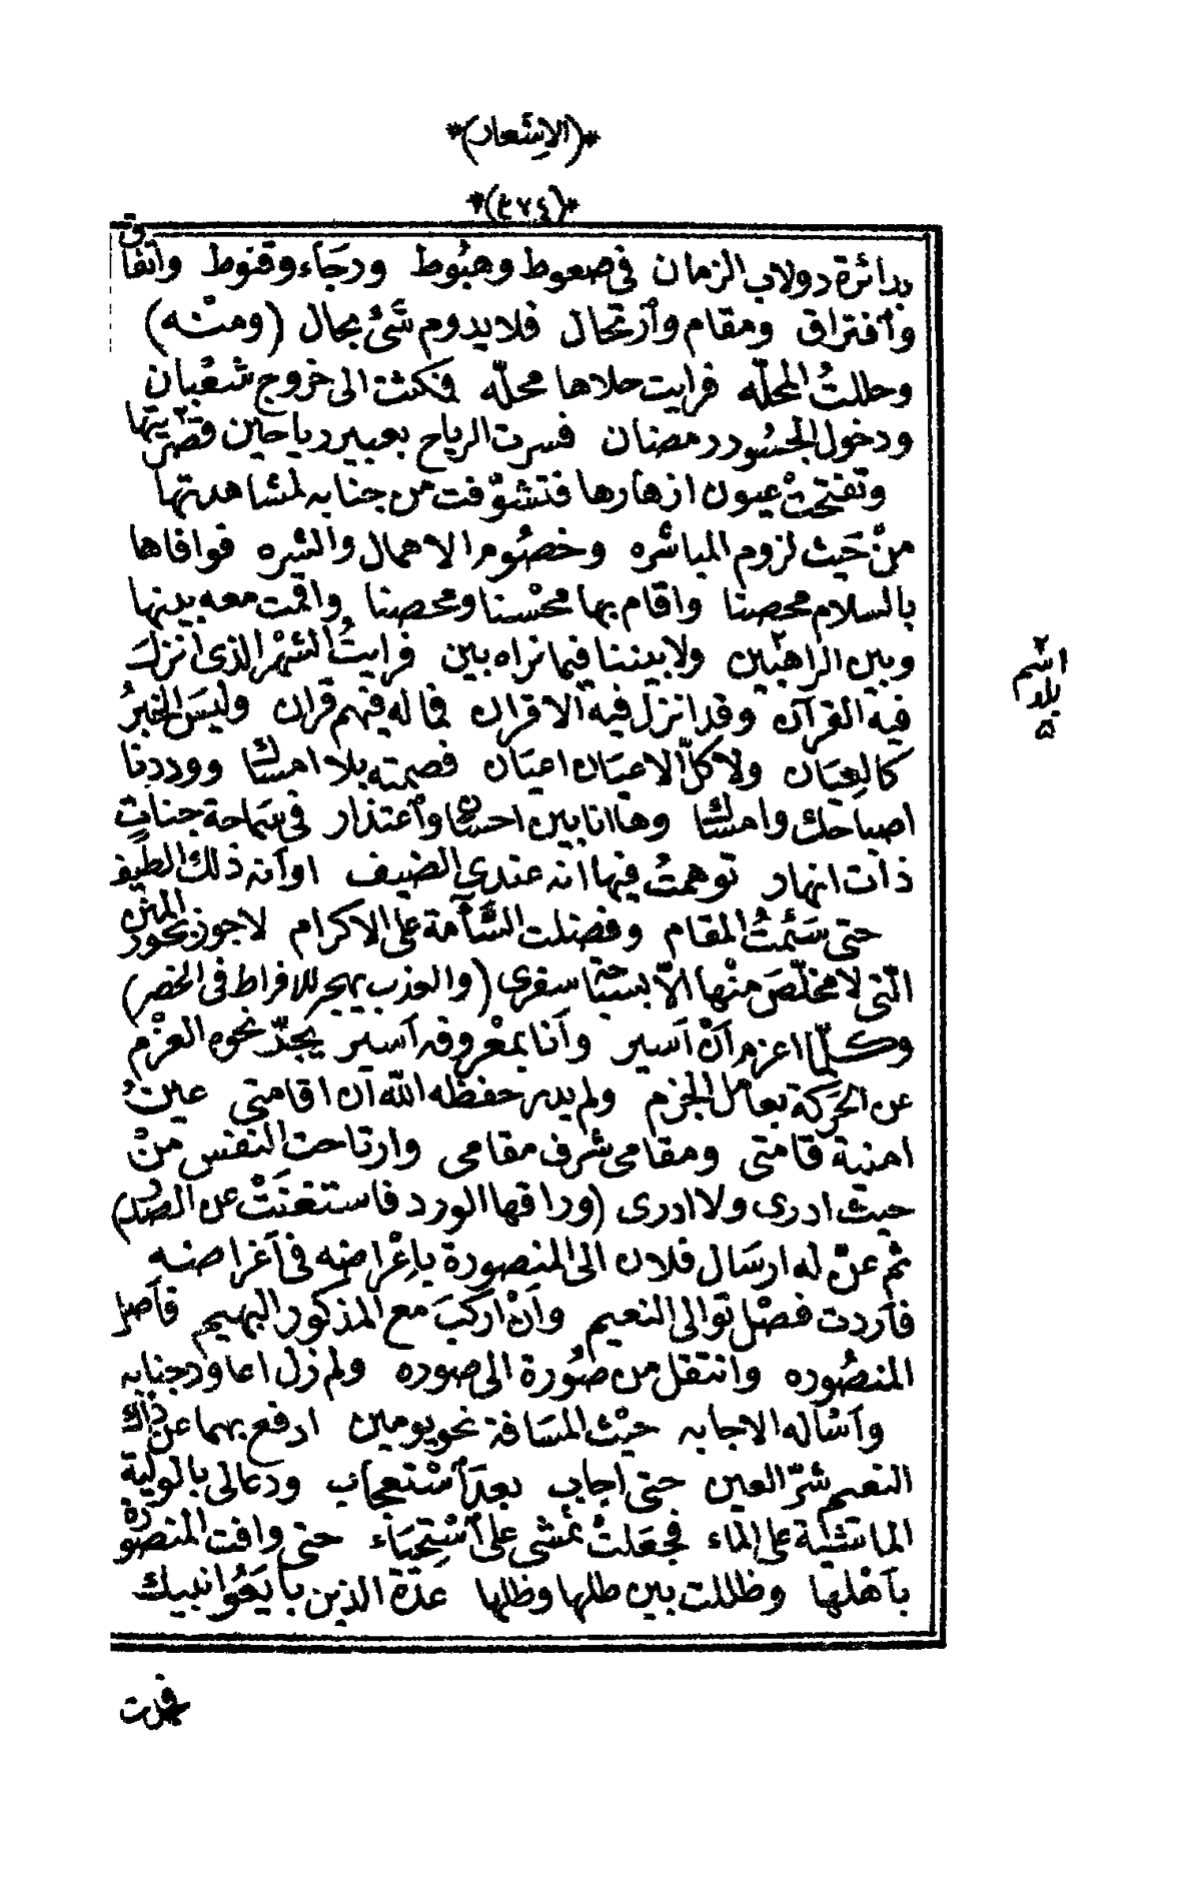 *(الاِشعار)*
*(٤٧٤)*
بدائرة دولاب الزمان فى صعوط وهبُوط ورجَاء وقنوط واتفاق
وٱفتراق ومقام وٱرتحال فلا يدوم شَئ بحال (ومنْه)
وحللتُ المحلّه فرايت حلاها محلّه فمكثت الى خروج شعْبان
ودخول الجسُود رمضان فسرت الرياح بعبير رياحين قصريتها
وتفتحتْ عيون ازهارها فتشوّفت من جنابه لمشاهدتها
منْ حَيث لزوم المباشره وخصُوم الاهمال والشره فوافاها
بالسلام محصنا واقام بها محْسنا ومحصنا واقمت معه بينها
وبين الراهبَين ولا بيننا فيما نراه بين فرايتُ الشهْر الذى انزلَ
فيه القرآن وقد انزل فيه الاقران فما له فيهم قران وليسَ الخبرُ
كالعِيَان ولا كلّ الاعيَان اعيَان فصمته بلا امسَاك ووددنا
اصباحك وامسَاك وها انا بين احسَان وٱعتذار فى سَاحة جناتٍ
ذات انهار توهمتُ فيها انه عندى الضيف او انه ذلك الطيف
حتى سَئمتُ المقام وفضلت السَّآمة على الاكرام لاجوز بحور المنن
التى لا مخلّصَ منْها الاّ بسبَاحة سفرى (والعذب يهجر للافراط فى الخصر)
وكلّما اعزم اَنْ اَسير واَنا بمعْروفه اَسير يجدّ نحوه العزْم
عن الحَركة بعامل الجزم ولم يدر حفظه الله اَن اقامتى عينُ
امنية قامتى ومقامى شرف مقامى وارتاحت النفس منْ
حيث ادرى ولا ادرى (وراقها الورد فاستغنَتْ عن الصدر)
ثم عنّ له ارسَال فلان الى المنصورة باِعْراضه فى اَغراضه
فاَردت فصْل توالى النعيم واَنْ اركبَ مع المذكور البهيم فاَصل
المنصُوره وانتقل من صُورة الى صوره ولم ازل اعاود جنابه
واَسْاله الاجابه حيْث المسَافة نحو يومين ادفع بهما عن ذاك
النعيم شرّ العين حتى اجاب بعدَ ٱسْتعجاب ودعا لى بالولية
الماشيَة على الماء فجعَلتْ تمشى على ٱسْتِحيَاء حتى وافت المنصُورة
باَهْلها وظللت بين طلها وظلها عدّة الذين بايَعُوا نبيك
٢
اسْم
بلد
فمرت